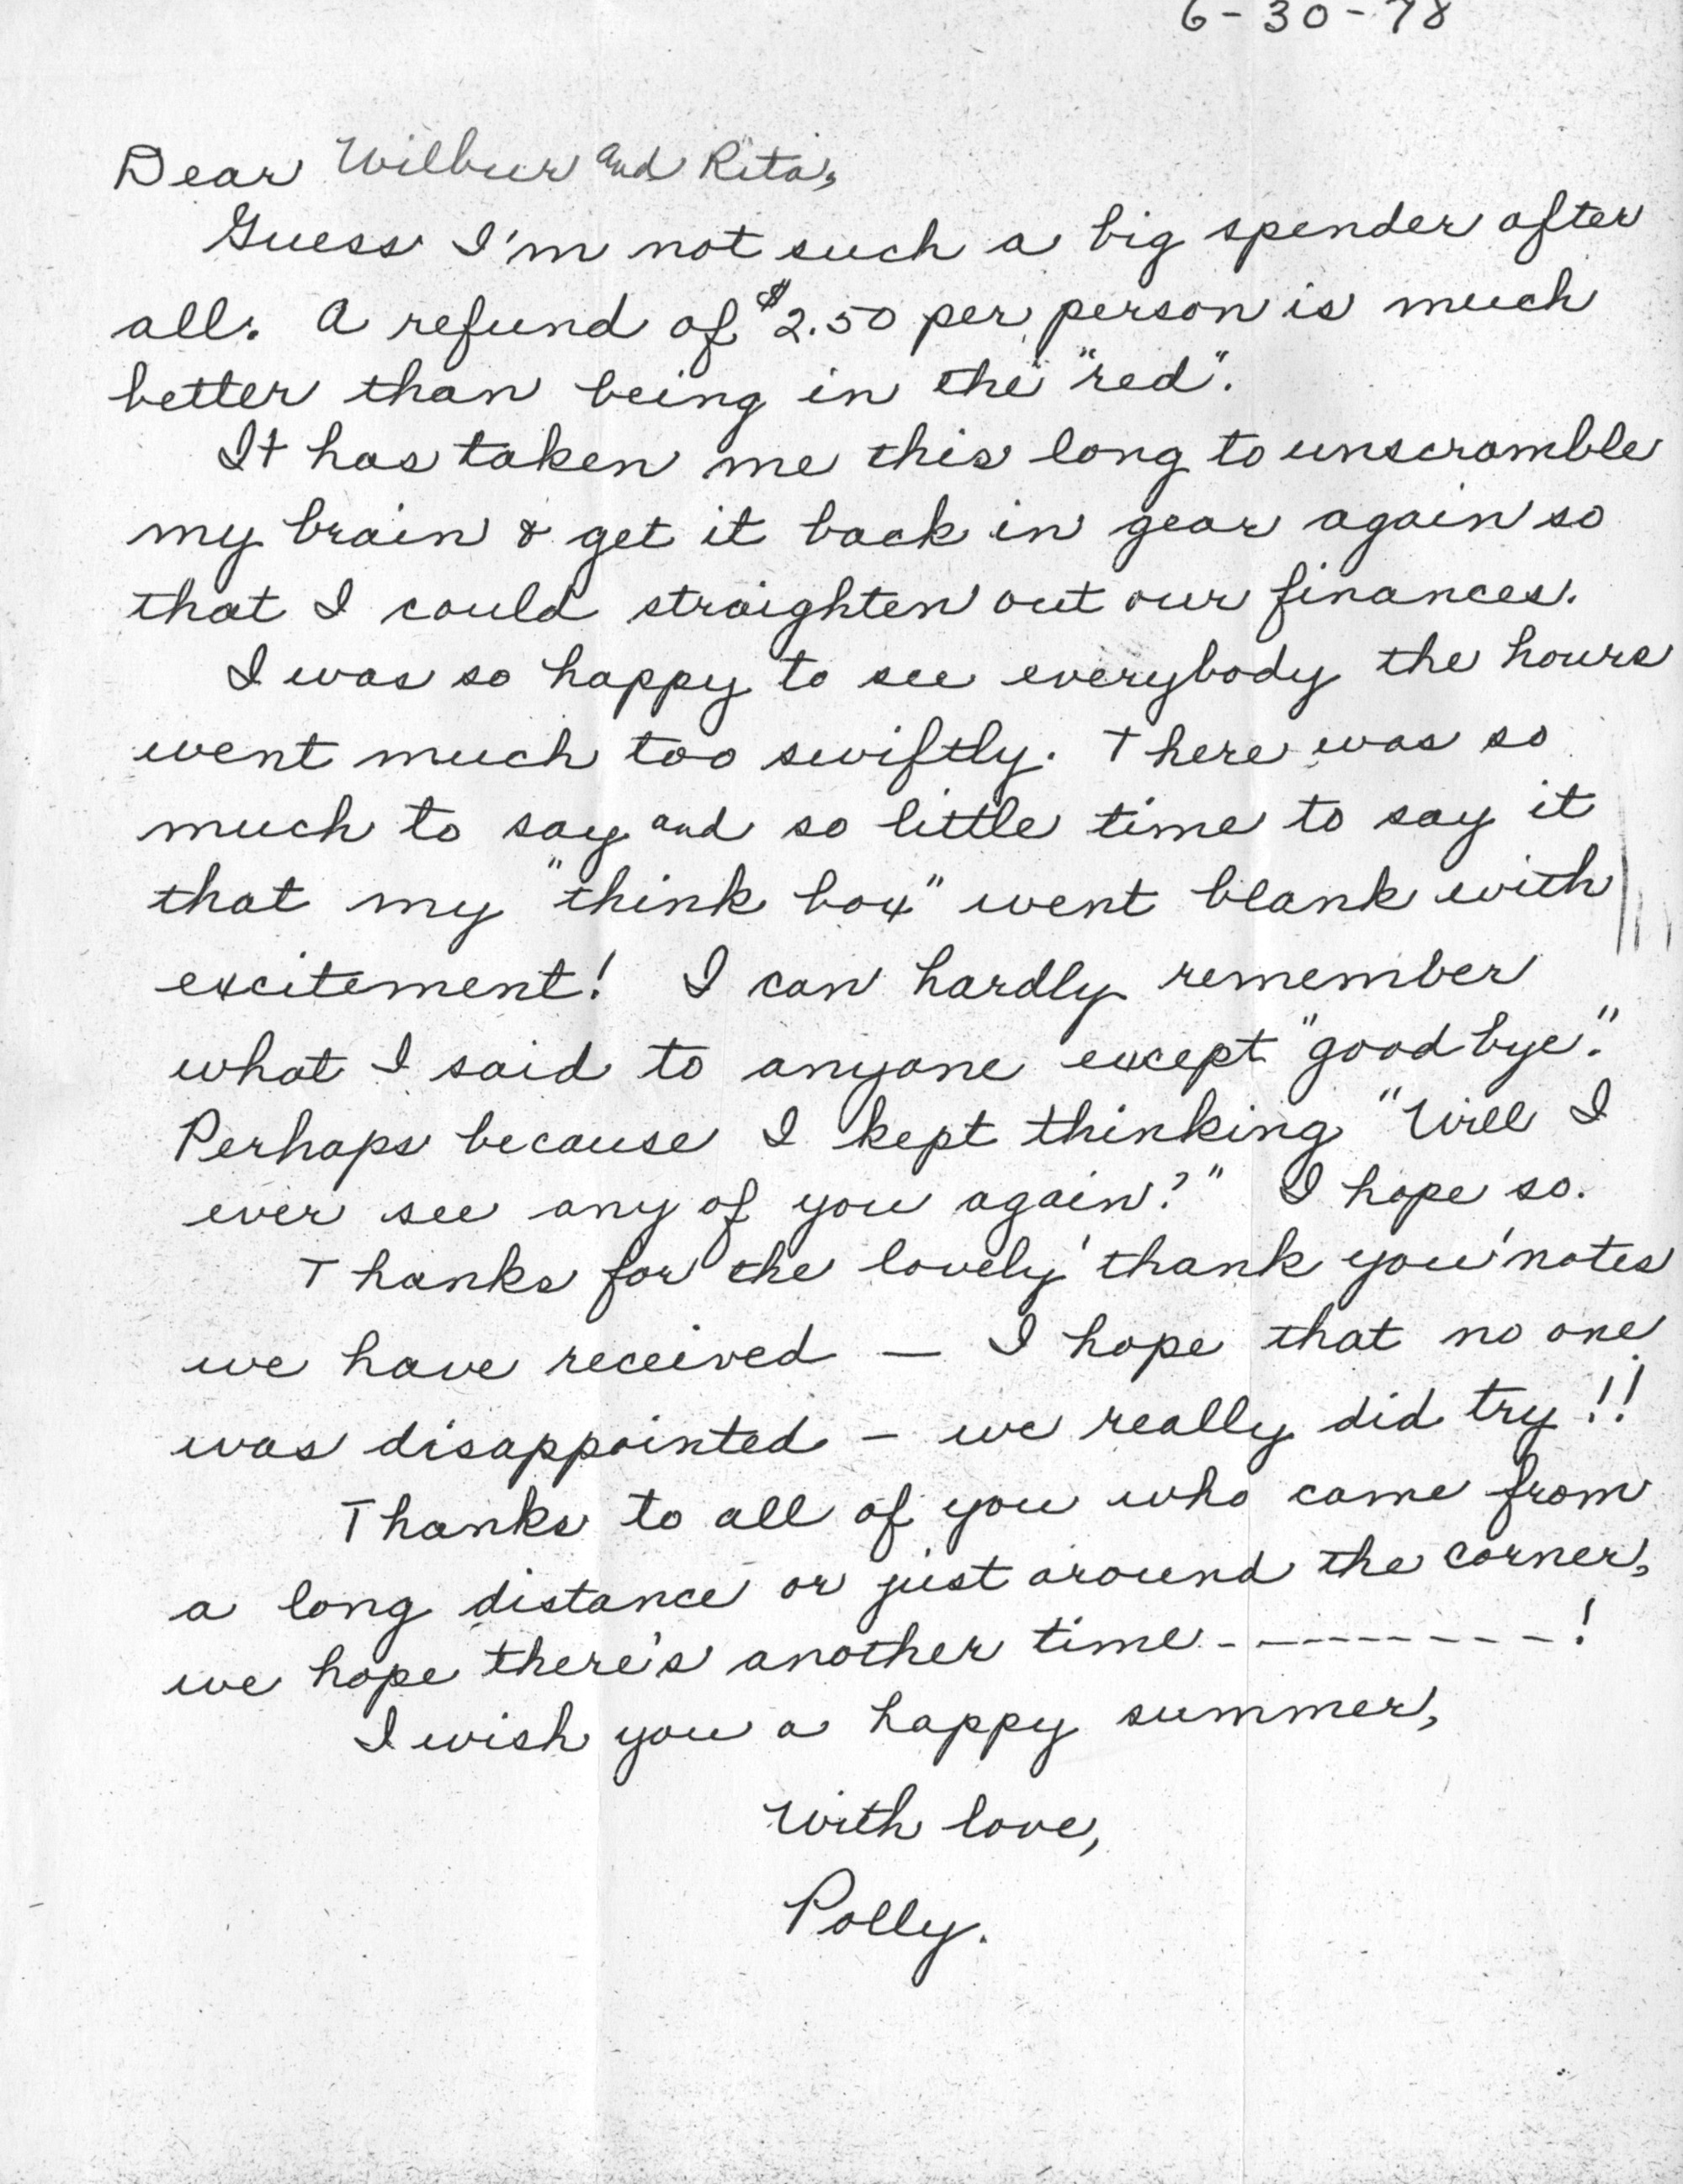 6-30-78
Dear Wilbur and Rita,
Guess I'm not such a big spender after
all. A refund of $2.50 per person is much
better than being in the "red".
It has taken me this long to unscramble
my brain & get it back in gear again so
that I could straighten out our finances.
I was so happy to see everybody the hours
went much too swiftly. There was so
much to say and so little time to say it
that my "think box" went blank with
excitement! I can hardly remember
what I said to anyone except "good bye."
Perhaps because I kept thinking "Will I
ever see any of you again?" I hope so.
Thanks for the lovely 'thank you' notes
we have received — I hope that no one
was disappointed - we really did try!!
Thanks to all of you who came from
a long distance or just around the corner,
we hope there's another time ---------!
I wish you a happy summer,
With love,
Polly.